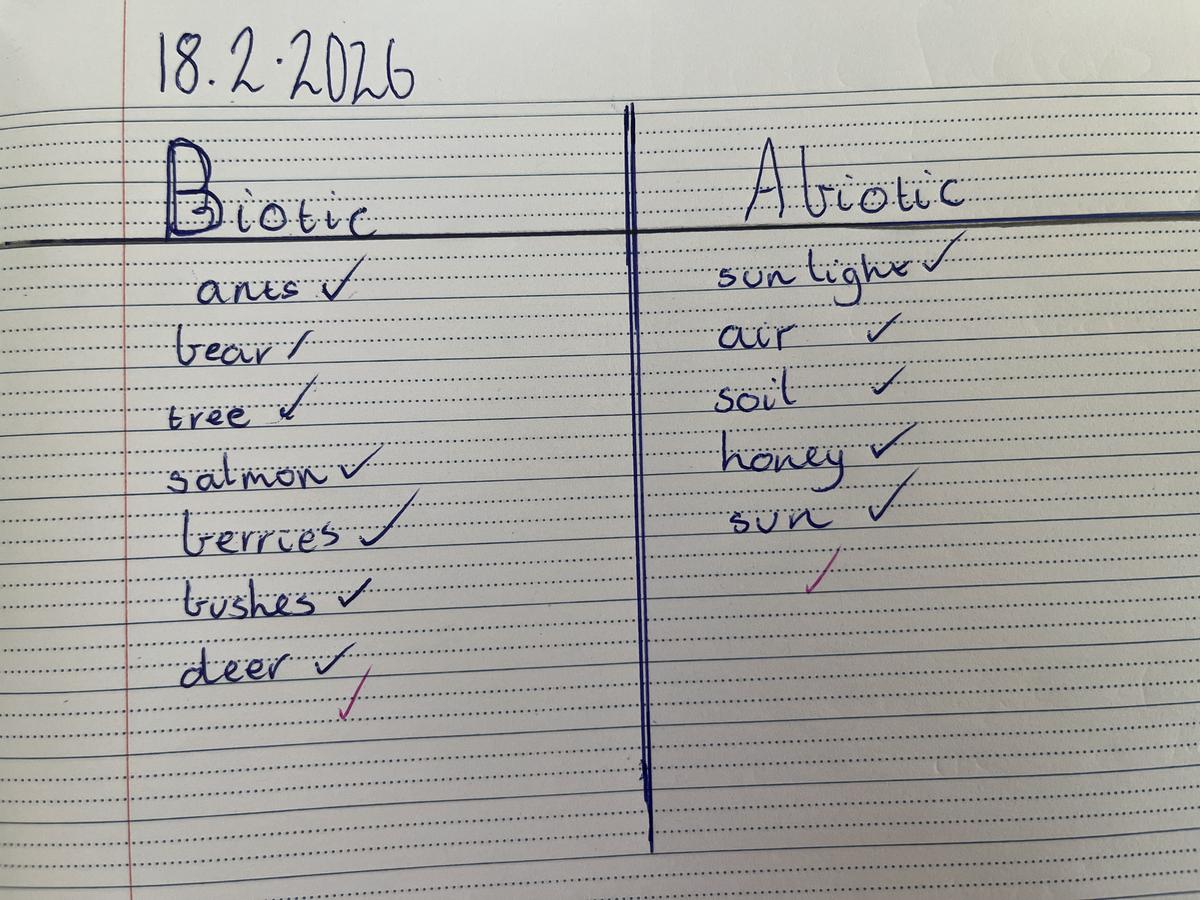 18.2.2026
Biotic
ants ✓
bear ✓
tree ✓
salmon ✓
berries ✓
bushes ✓
deer ✓
✓
Abiotic
sun light ✓
air ✓
soil ✓
honey ✓
sun ✓
✓